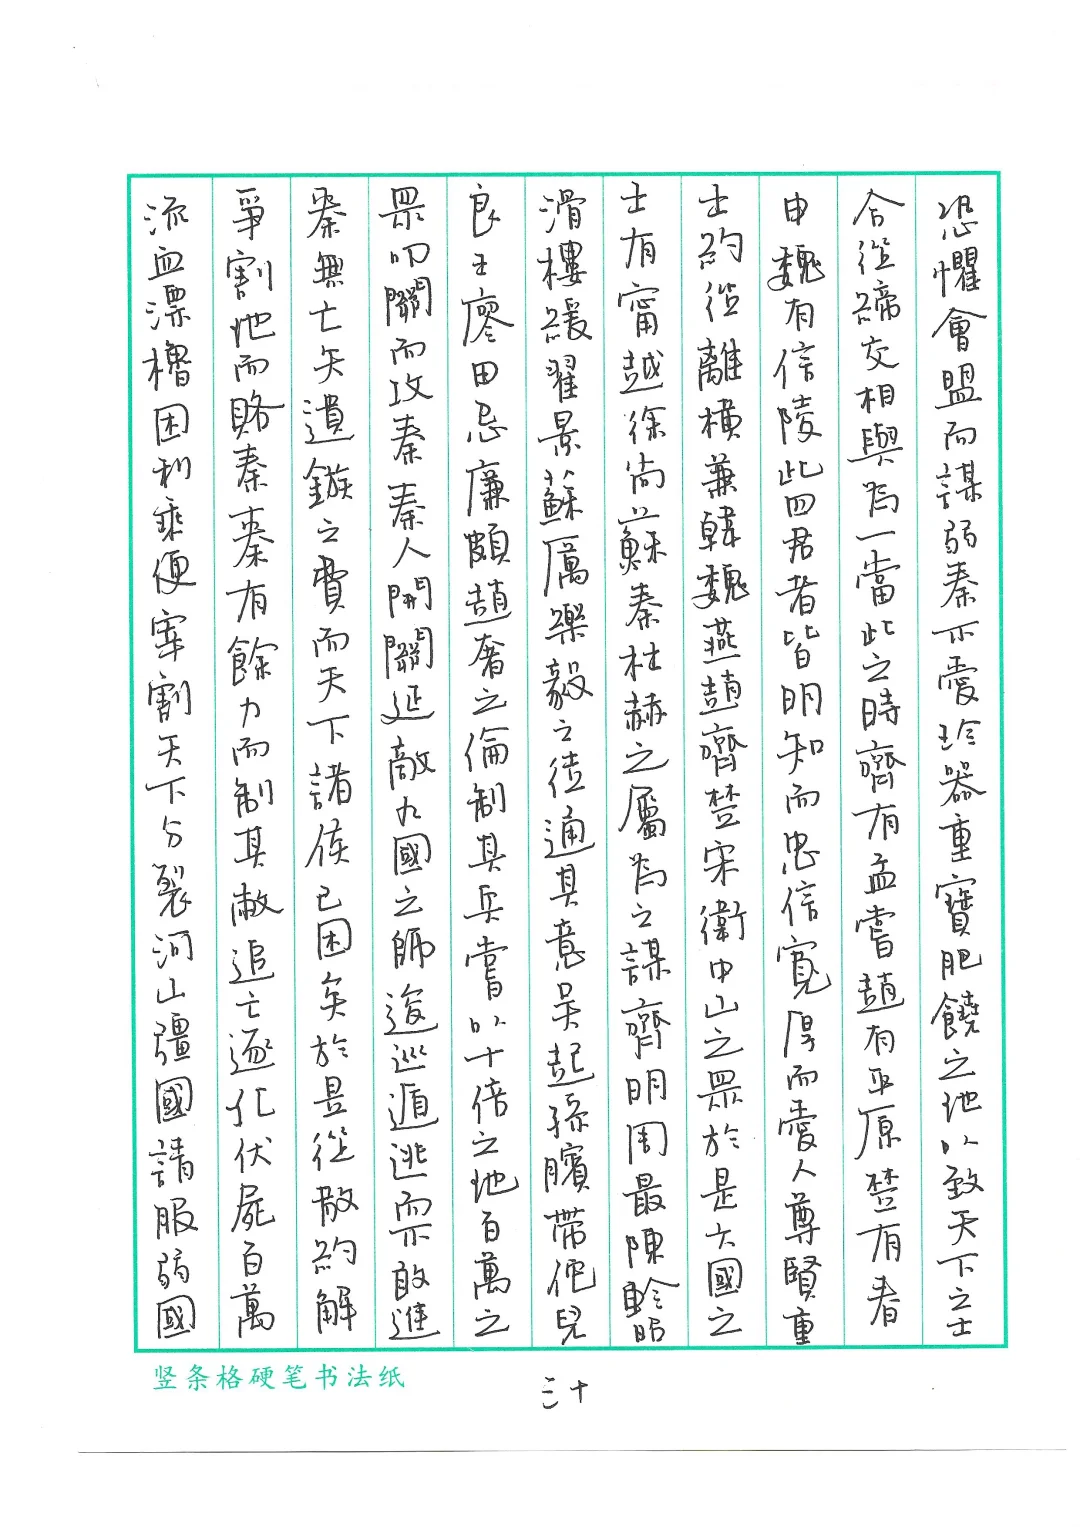 恐懼會盟而謀弱秦不愛珍器重寶肥饒之地以致天下之士
合從締交相與為一當此之時齊有孟嘗趙有平原楚有春
申魏有信陵此四君者皆明知而忠信寬厚而愛人尊賢重
士約從離橫兼韓魏燕趙齊楚宋衛中山之眾於是六國之
士有甯越徐尚蘇秦杜赫之屬為之謀齊明周最陳軫昭
滑樓緩翟景蘇厲樂毅之徒通其意吳起孫臏帶佗兒
良王廖田忌廉頗趙奢之倫制其兵嘗以十倍之地百萬之
眾叩關而攻秦秦人開關延敵九國之師逡巡遁逃而不敢進
秦無亡矢遺鏃之費而天下諸侯已困矣於是從散約解
爭割地而賂秦秦有餘力而制其敝追亡逐北伏屍百萬
流血漂櫓因利乘便宰割天下分裂河山彊國請服弱國
竖条格硬笔书法纸
三十